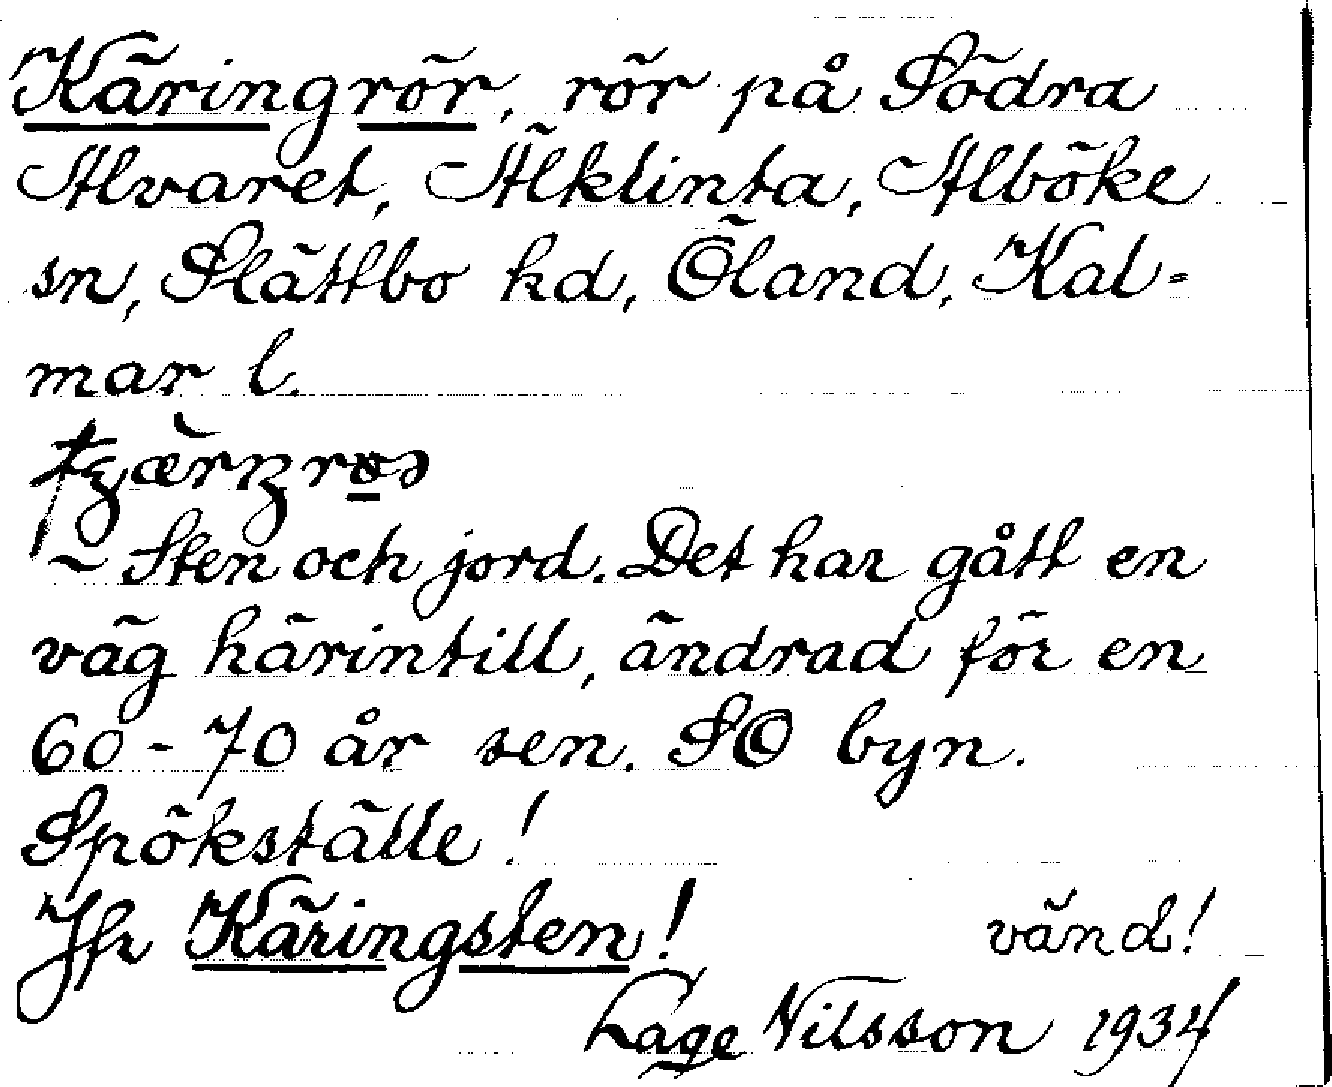 Käringrör, rör på Södra
Alvaret, Älklinta, Alböke
sn, Slättbo hd, Öland, Kal-
mar l.
~ Sten och jord. Det har gått en
väg härintill, ändrad för en
60-70 år sen. SO byn.
Spökställe!
Jfr Käringsten! vänd!
Lage Nilsson 1934